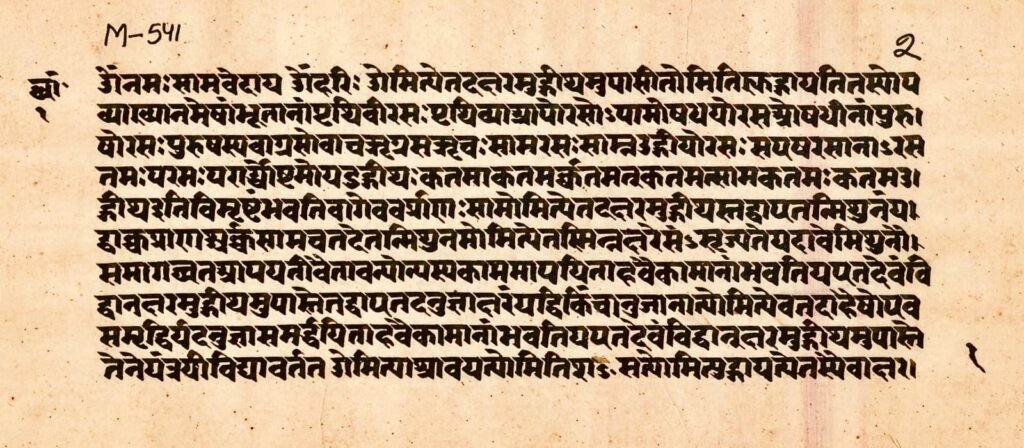 M-541
2
छां
ॐनमःसामवेदाय ॐहरिः ओमित्येतदक्षरमुद्गीथमुपासीतोमितिह्युद्गायतितस्योप
व्याख्यानमेषांभूतानांपृथिवीरसःपृथिव्याआपोरसोऽपामोषधयोरसओषधीनांपुरु।
षोरसःपुरुषस्यवाग्रसोवाचऋग्रसऋचःसामरसःसाम्नउद्गीथोरसःसएषरसानाऽरस
तमःपरमःपरार्द्ध्योष्टमोयउद्गीथःकतमाकतमर्क्कतमत्कतमत्सामकतमःकतमउ।
द्गीथइतिविमृष्टंभवतिवागेवर्क्प्राणःसामोमित्येतदक्षरमुद्गीथस्तद्वाएतन्मिथुनंय।
द्वाक्चप्राणाश्चर्क्चसामचतदेतन्मिथुनमोमित्येतस्मिन्नक्षरेसंऽसृज्यतेयदावैमिथुनौ।
समागच्छतआपयतोवैतावन्योन्यस्यकाममापयिताहवैकामानांभवतियएतदेवंवि
द्वानक्षरमुद्गीथमुपास्तेतद्वाएतदनुज्ञाक्षरंयद्धिकिंचानुजानात्योमित्येवतदाहैषोएव
समृद्धिर्यदनुज्ञासमर्द्धयिताहवैकामानांभवतियएतदेवंविद्वानक्षरमुद्गीथमुपास्ते
तेनेयंत्रयीविद्यावर्तते ओमित्याश्रावयत्योमितिशाऽसत्योमित्युद्गायत्येतस्यैवाक्षर।